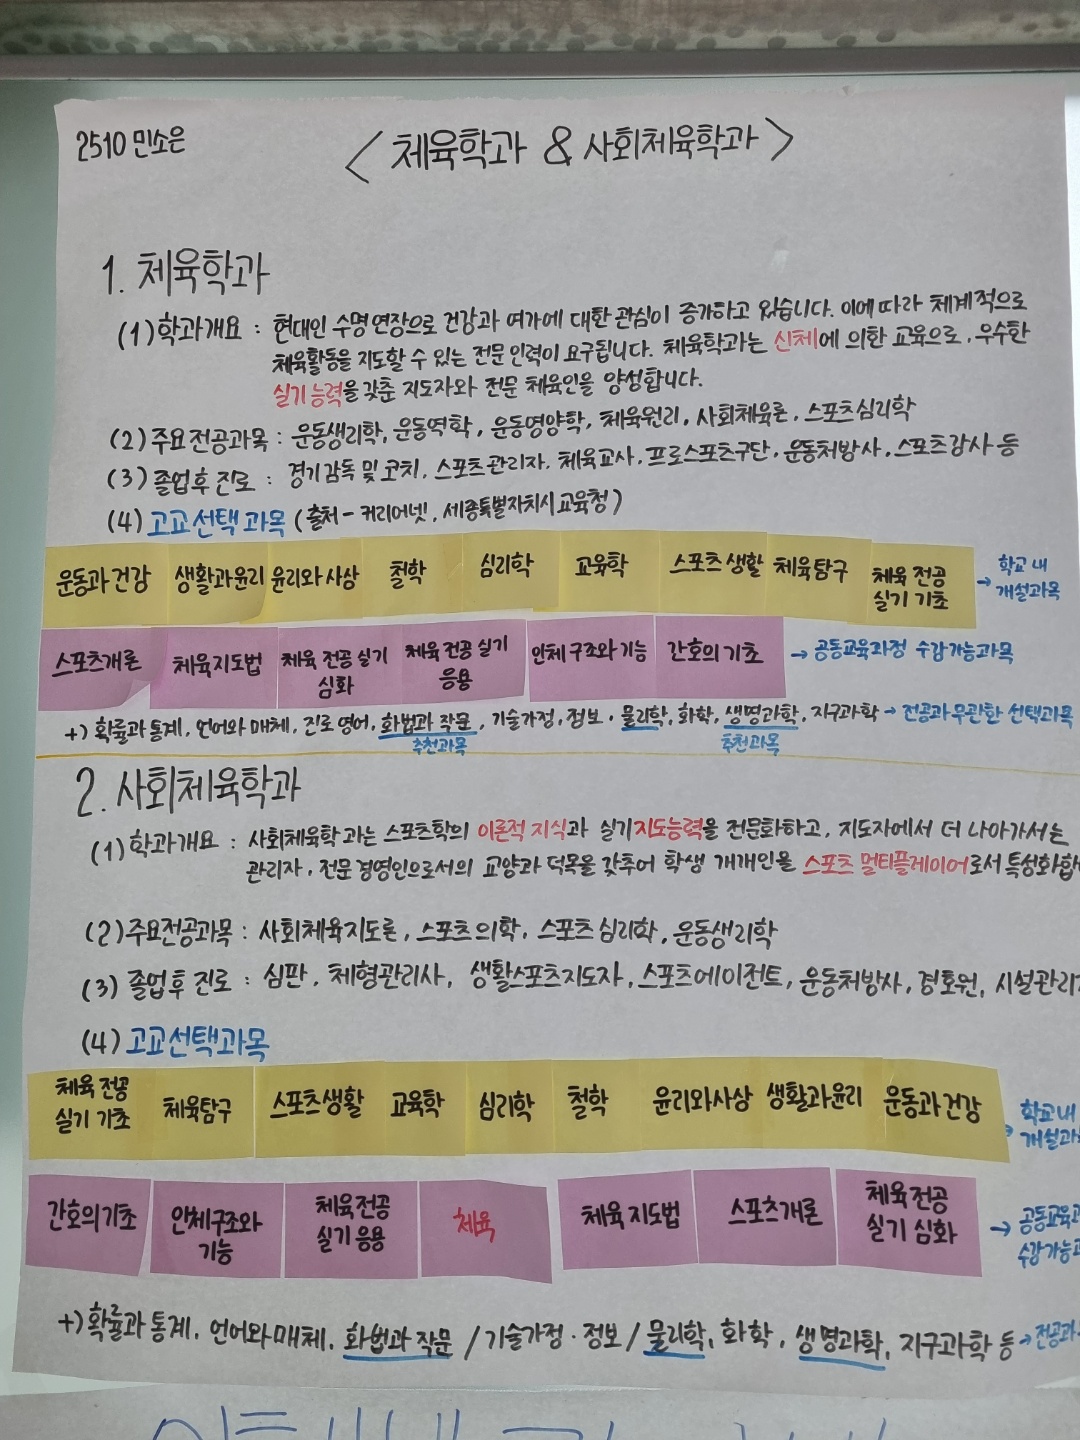 2510 민소은
< 체육학과 & 사회체육학과 >
1. 체육학과
(1) 학과개요 : 현대인 수명 연장으로 건강과 여가에 대한 관심이 증가하고 있습니다. 이에 따라 체계적으로
체육활동을 지도할 수 있는 전문 인력이 요구됩니다. 체육학과는 신체에 의한 교육으로, 우수한
실기 능력을 갖춘 지도자와 전문 체육인을 양성합니다.
(2) 주요 전공과목 : 운동생리학, 운동역학, 운동영양학, 체육원리, 사회체육론, 스포츠심리학
(3) 졸업 후 진로 : 경기감독 및 코치, 스포츠 관리자, 체육교사, 프로스포츠구단, 운동처방사, 스포츠강사 등
(4) 고교 선택 과목 (출처 - 커리어넷, 세종특별자치시 교육청)
운동과 건강 생활과 윤리 윤리와 사상 철학 심리학 교육학 스포츠 생활 체육 탐구 체육 전공 실기 기초 → 학교 내 개설과목
스포츠개론 체육지도법 체육 전공 실기 심화 체육 전공 실기 응용 인체 구조와 기능 간호의 기초 → 공동교육과정 수강가능과목
+) 확률과 통계, 언어와 매체, 진로 영어, 화법과 작문, 기술가정, 정보, 물리학, 화학, 생명과학, 지구과학 → 전공과 무관한 선택과목
추천과목 추천과목
2. 사회체육학과
(1) 학과개요 : 사회체육학과는 스포츠학의 이론적 지식과 실기지도능력을 전문화하고, 지도자에서 더 나아가서는
관리자, 전문 경영인으로서의 교양과 덕목을 갖추어 학생 개개인을 스포츠 멀티플레이어로서 특성화합
(2) 주요전공과목 : 사회체육지도론, 스포츠의학, 스포츠심리학, 운동생리학
(3) 졸업 후 진로 : 심판, 체형관리사, 생활스포츠지도자, 스포츠에이전트, 운동처방사, 경호원, 시설관리
(4) 고교선택과목
체육 전공 실기 기초 체육탐구 스포츠 생활 교육학 심리학 철학 윤리와 사상 생활과 윤리 운동과 건강 학교 내 개설과
간호의 기초 인체구조와 기능 체육 전공 실기 응용 체육 체육 지도법 스포츠개론 체육 전공 실기 심화 → 공동교육과 수강가능
+) 확률과 통계, 언어와 매체, 화법과 작문 / 기술가정 · 정보 / 물리학, 화학, 생명과학, 지구과학 등 → 전공과